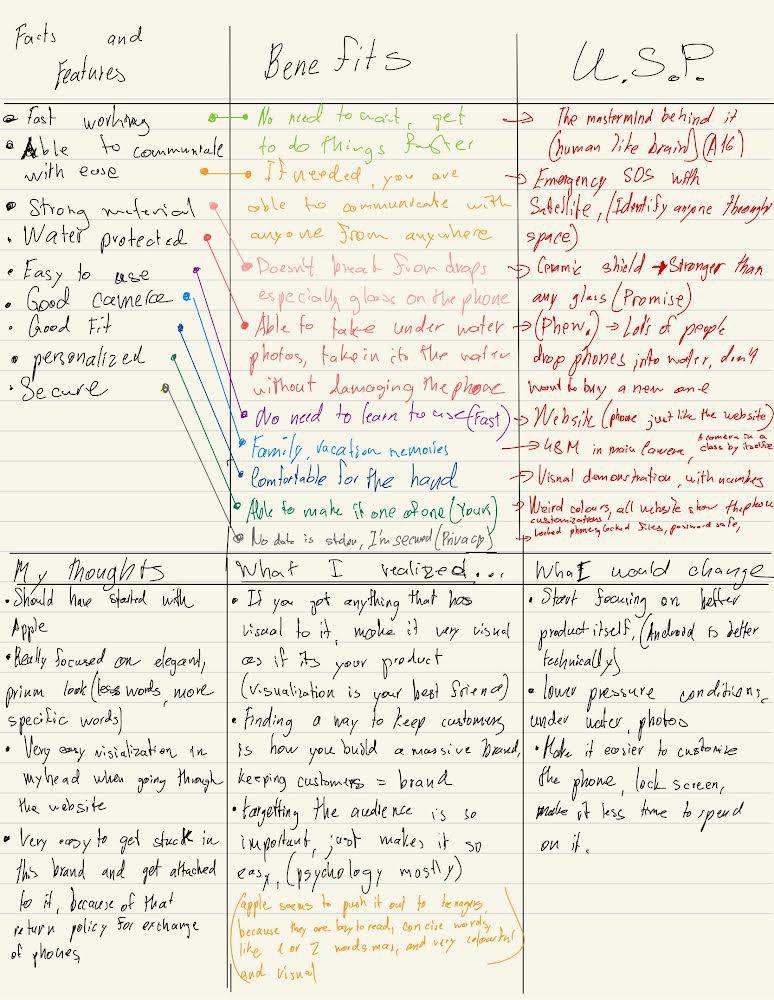 Facts and
Features
• Fast working
• Able to communicate
with ease
• Strong material
• Water protected
• Easy to use
• Good camera
• Good Fit
• personalized
• Secure
Benefits
No need to wait, get
to do things faster
If needed, you are
able to communicate with
anyone from anywhere
Doesn't break from drops
especially glass on the phone
Able to take under water
photos, take in to the water
without damaging the phone
No need to learn to use (Fast)
Family, vacation memories
Comfortable for the hand
Able to make it one of one (Yours)
No data is stolen, I'm secured (Privacy)
U.S.P.
→ The mastermind behind it
(human like brain) (A16)
→ Emergency SOS with
Satellite, (Identify anyone through
space)
→ Ceramic shield → Stronger than
any glass (Promise)
→ (Phew.) → Lots of people
drop phones into water, don't
want to buy a new one
→ Website (phone just like the website)
→ 48M in main Camera, A camera in a
class by itself
→ Visual demonstration, with numbers
→ Weird colours, all website show the phone
customizations
→ Locked phones, locked files, password safe,
My thoughts
• Should have started with
Apple
• Really focused on elegant,
prium look (less words, more
specific words)
• Very easy visialization in
my head when going through
the website
• Very easy to get stuck in
this brand and get attached
to it, because of that
return policy for exchange
of phones
What I realized...
• If you got anything that has
visual to it, make it very visual
as if its your product
(visualization is your best friend)
• Finding a way to keep customers
is how you build a massive brand,
keeping customers = brand
• targetting the audience is so
important, just makes it so
easy, (psychology mostly)
(apple seems to push it out to teenagers,
because they are lazy to read, concise words,
like 1 or 2 words max, and very colourful
and visual
What I would change
• Start focusing on better
product itself, (Android is better
technically)
• lower pressure conditions,
under water, photos
• Make it easier to customize
the phone, lock screen,
make it less time to spend
on it.